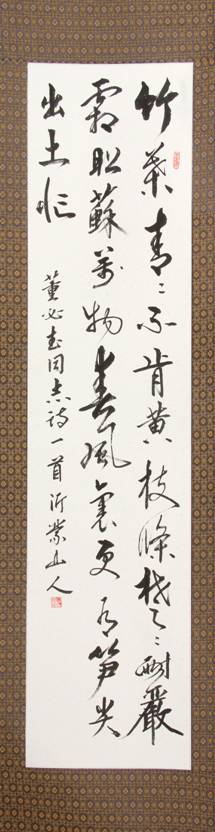 竹葉青〻不肯黄枝條楚〻耐嚴
霜昭蘇萬物春風裏更有笋尖
出土忙
董必武同志詩一首沂蒙山人